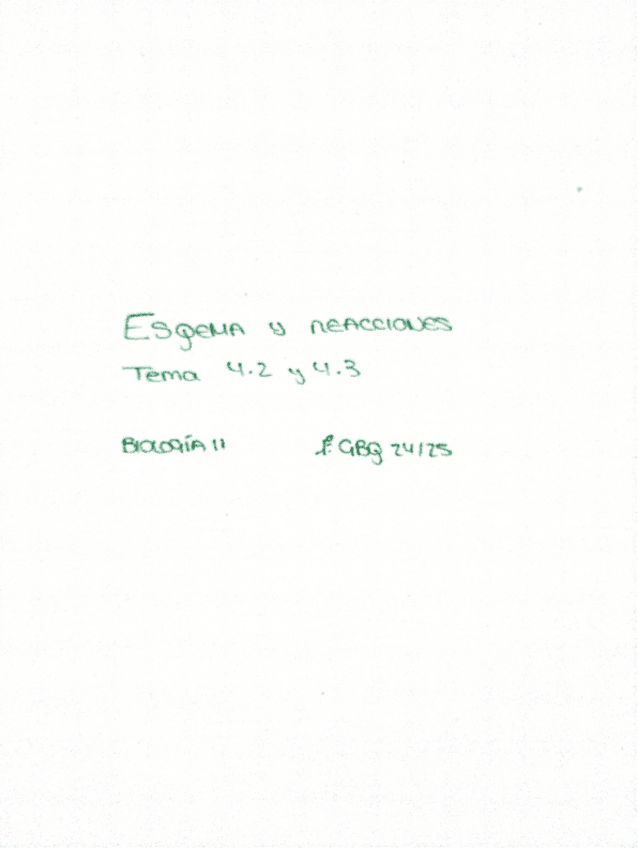 Esqema y reacciones
Tema 4.2 y 4.3
Biología II GBQ 24/25